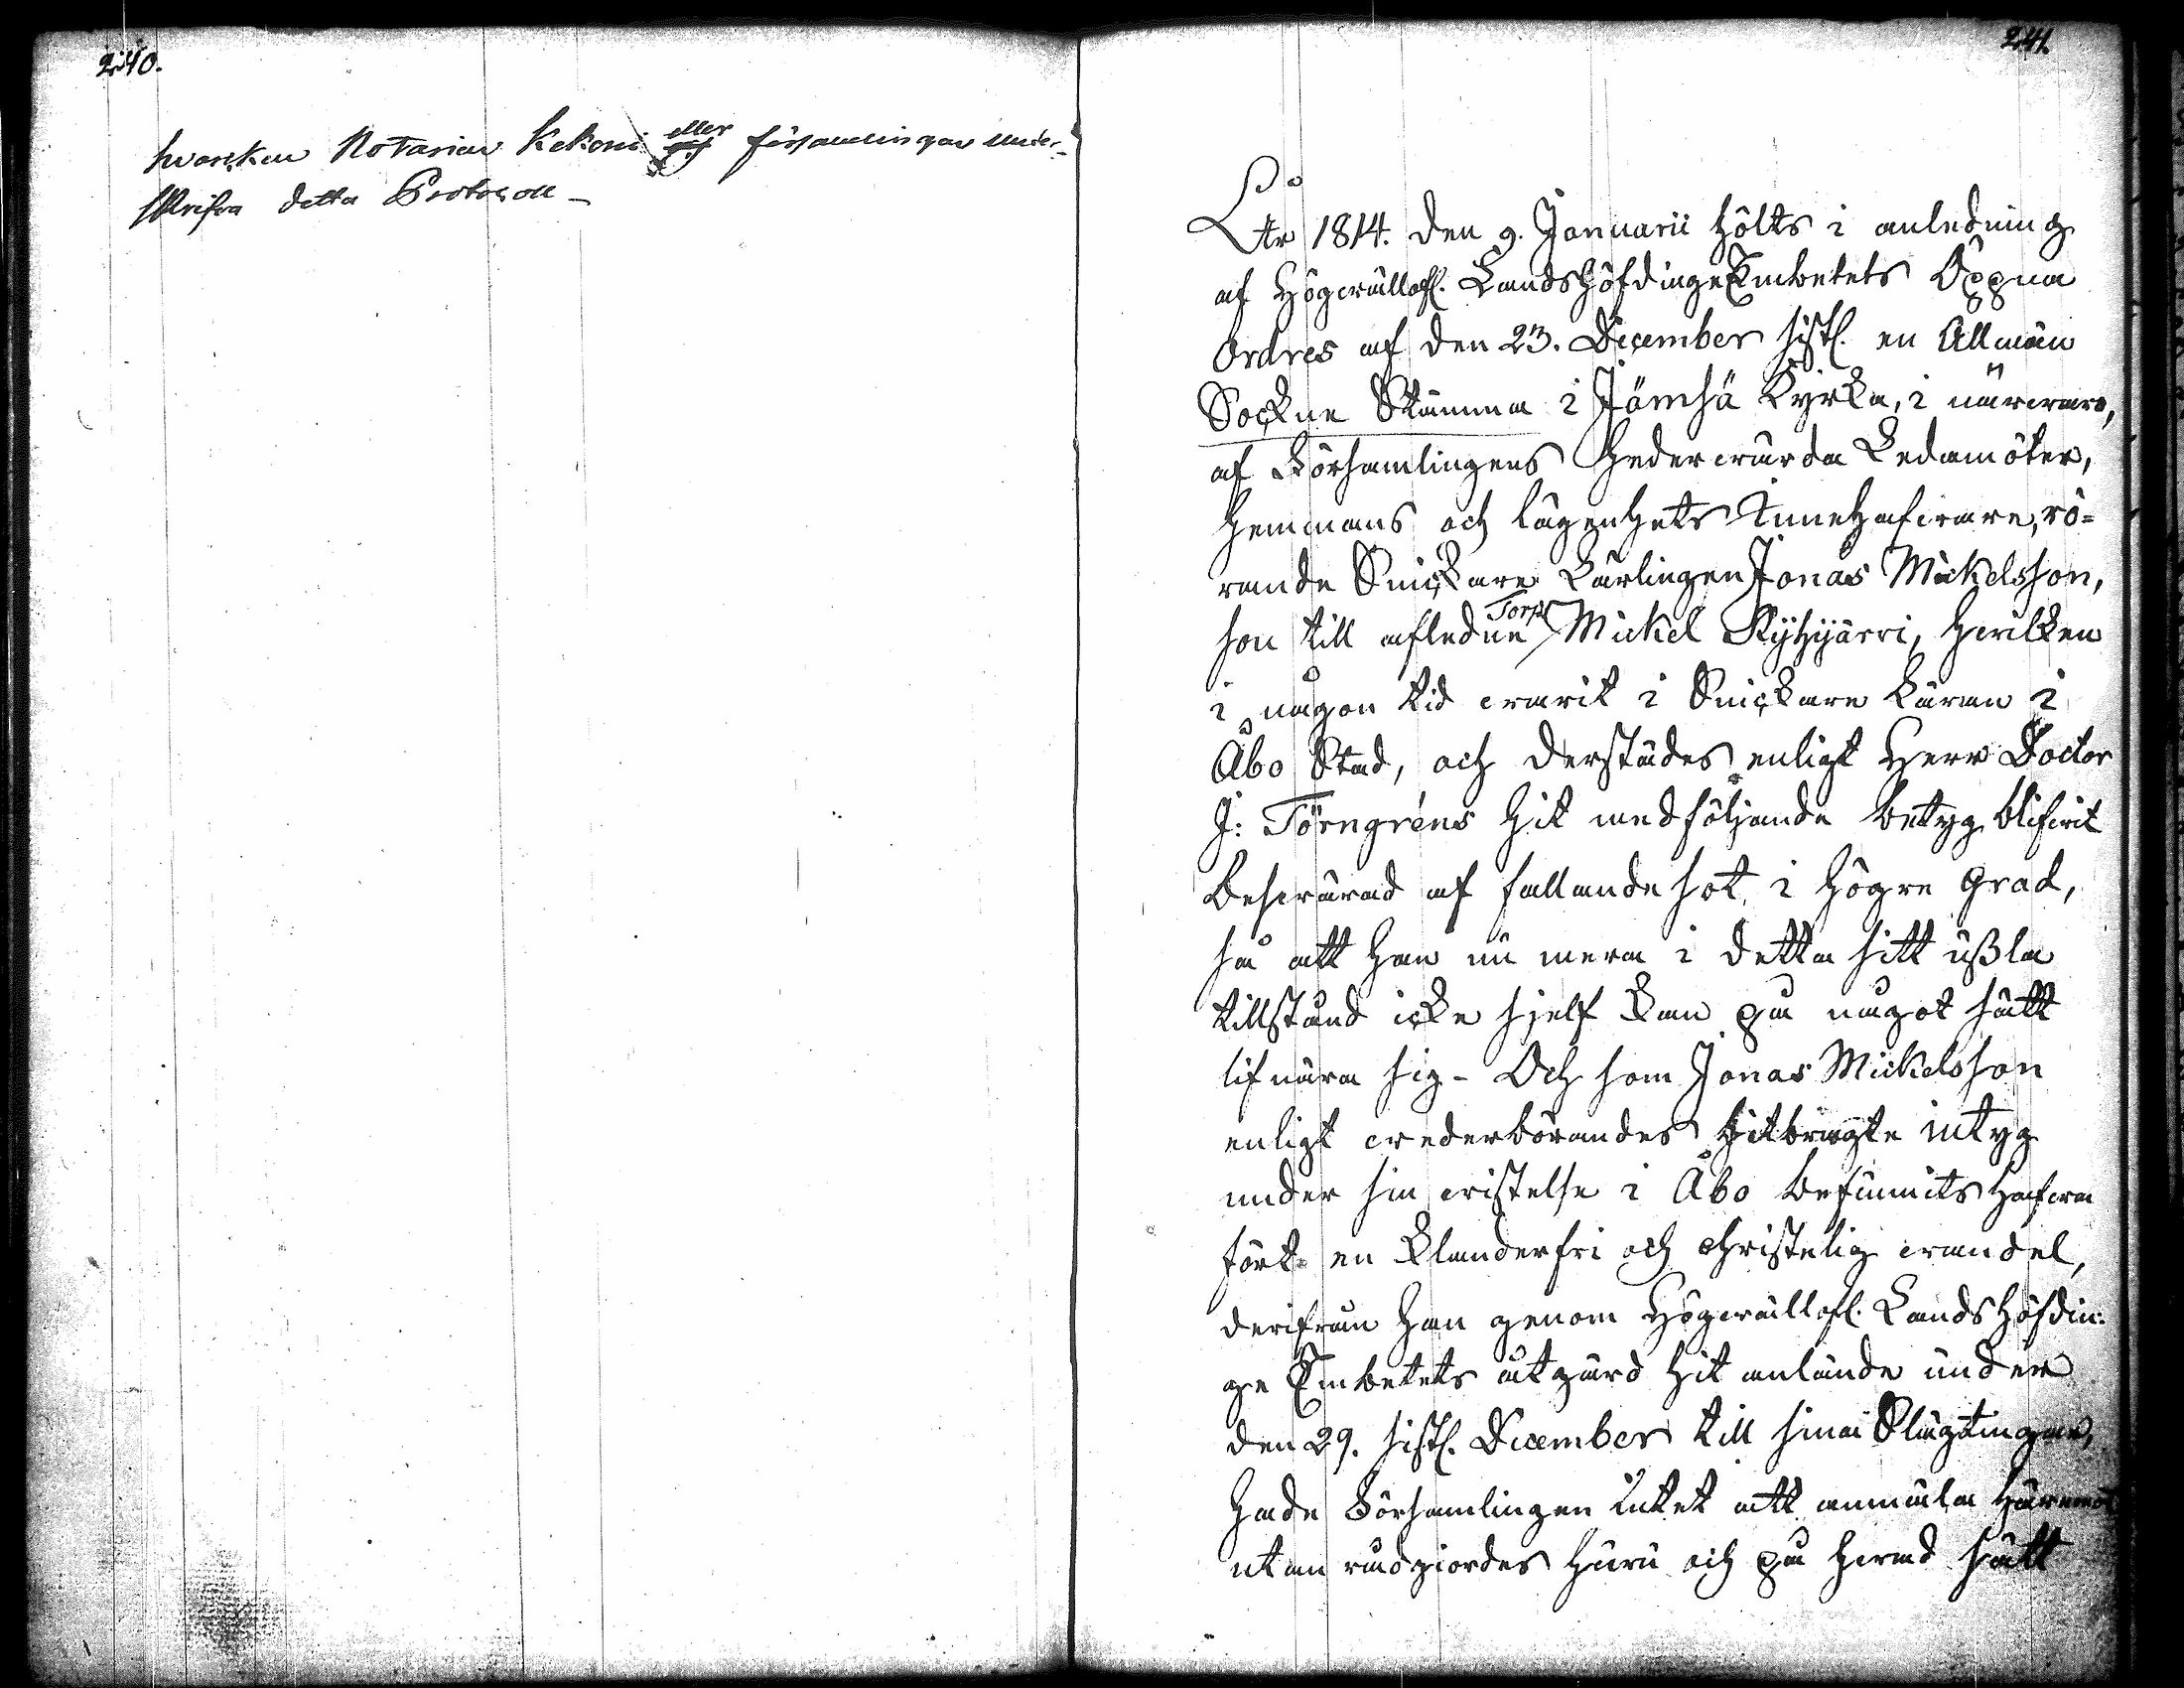 240.
hvarken Notarien Kekoni eller församlingen under-
skrifva detta Protocoll -
241.
År 1814. den 9. Januarii hölts i anledning
af Högvällofl. LandsHöfdingeEmbetets Öppna
Ordres af den 23. December sistl. en Allmän
Sockne Stämma i Jämsä Kyrka, i närvaro,
af Församlingens Hedervärda Ledamöter,
Hemmans och lägenhets Innehafvare, rö=
rande Snickare Lärlingen Jonas Mickelsson,
son till afledne Torp Mickel Kyhyärri, hvilken
i någon tid varit i Snickare läran i
Åbo Stad, och derstädes enligt Herr Doctor
J: Törngréns hit medföljande betyg blifvit
besvärad af fallande sot i högre grad,
så att Han nu mera i detta sitt usla
tillstånd icke sjelf kan på något sätt
lifnära sig - Och som Jonas Mickelsson
enligt vederbörandes hitbragte intyg
under sin vistelse i Åbo befunnits hafva
fört en klanderfri och christelig vandel,
derifrån Han genom Högvällofl. LandsHöfdin:
ge Embetets åtgärd hit anlände under
den 29. sistl. December till sina Slägtingar,
Hade Församlingen intet att anmäla häremot
utan rådgiordes huru och på hvad sätt